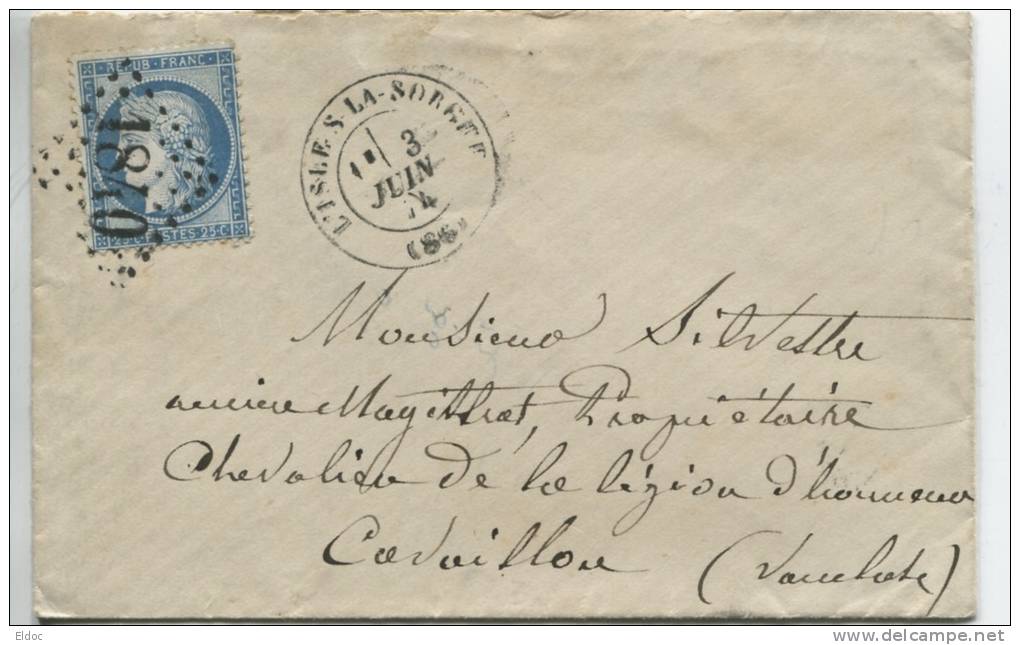 REPUB · FRANC ·
25·C·POSTES 25·C
1840
L'ISLE-S-LA-SORGUE
3
JUIN
74
(86)
Monsieur Silvestre
ancien Magistrat, Propriétaire
Chevalier de la légion d'honneur
Cavaillon (Vaucluse)
Eldoc
delcampe.net